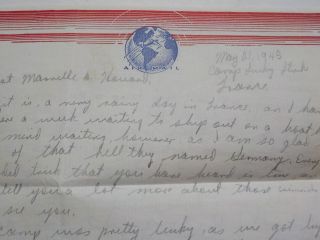 AIR MAIL
May 21, 1945
Camp Lucky Strike
France
at Marvelle & Howard,
it is, a rainy day in France, and I ha
a week waiting to ship out on a boat
mind waiting however as I am so glad
of that hell they named Germany. Every
that you have heard is
tell you a lot more about those
see you.
camp was pretty lucky, as we got